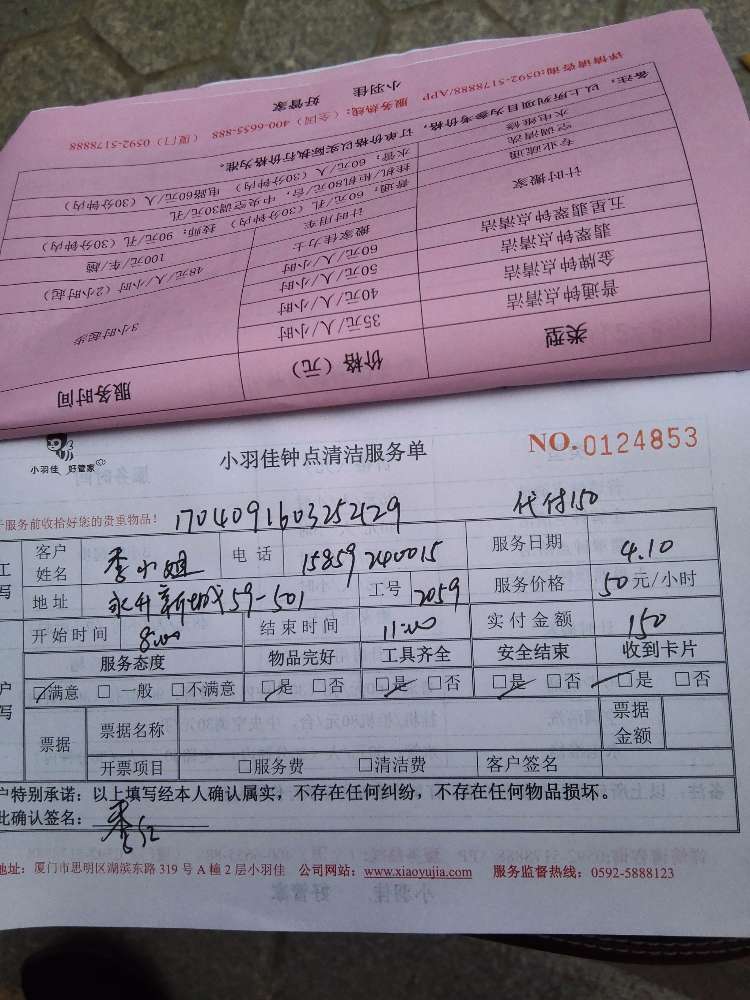 小羽佳 好管家
详情请咨询:0592-5178888/APP 服务热线:(全国)400-6655-888 (厦门)0592-5178888
备注:以上所列项目为参考价格,订单价格以实际执行价格为准。
水电维修 水管:60元/人(30分钟内) 电路60元/人(30分钟内)
空调清洗 挂机/柜机80元/台,中央空调30元/孔
专业疏通 普通:60元/孔(30分钟内) 技师:90元/孔(30分钟内)
计时搬家 计时用车 100元/车/趟
搬家佳力士 48元/人/小时(2小时起)
五星翡翠钟点清洁 60元/人/小时
翡翠钟点清洁 50元/人/小时
金牌钟点清洁 40元/人/小时 3小时起步
普通钟点清洁 35元/人/小时
类型 价格(元) 服务时间
小羽佳 好管家
小羽佳钟点清洁服务单 NO.0124853
服务前收拾好您的贵重物品! 1704091603252129 代付150
工 客户姓名 李小姐 电话 15859240015 服务日期 4.10
写 地址 永升新城59-501 工号 2059 服务价格 50元/小时
开始时间 8:00 结束时间 11:00 实付金额 150
服务态度 物品完好 工具齐全 安全结束 收到卡片
户 □满意 □一般 □不满意 □是 □否 □是 □否 □是 □否 □是 □否
写 票据 票据名称 票据金额
开票项目 □服务费 □清洁费 客户签名
户特别承诺:以上填写经本人确认属实,不存在任何纠纷,不存在任何物品损坏。
此确认签名:
地址:厦门市思明区湖滨东路319号A幢2层小羽佳 公司网站:www.xiaoyujia.com 服务监督热线:0592-5888123